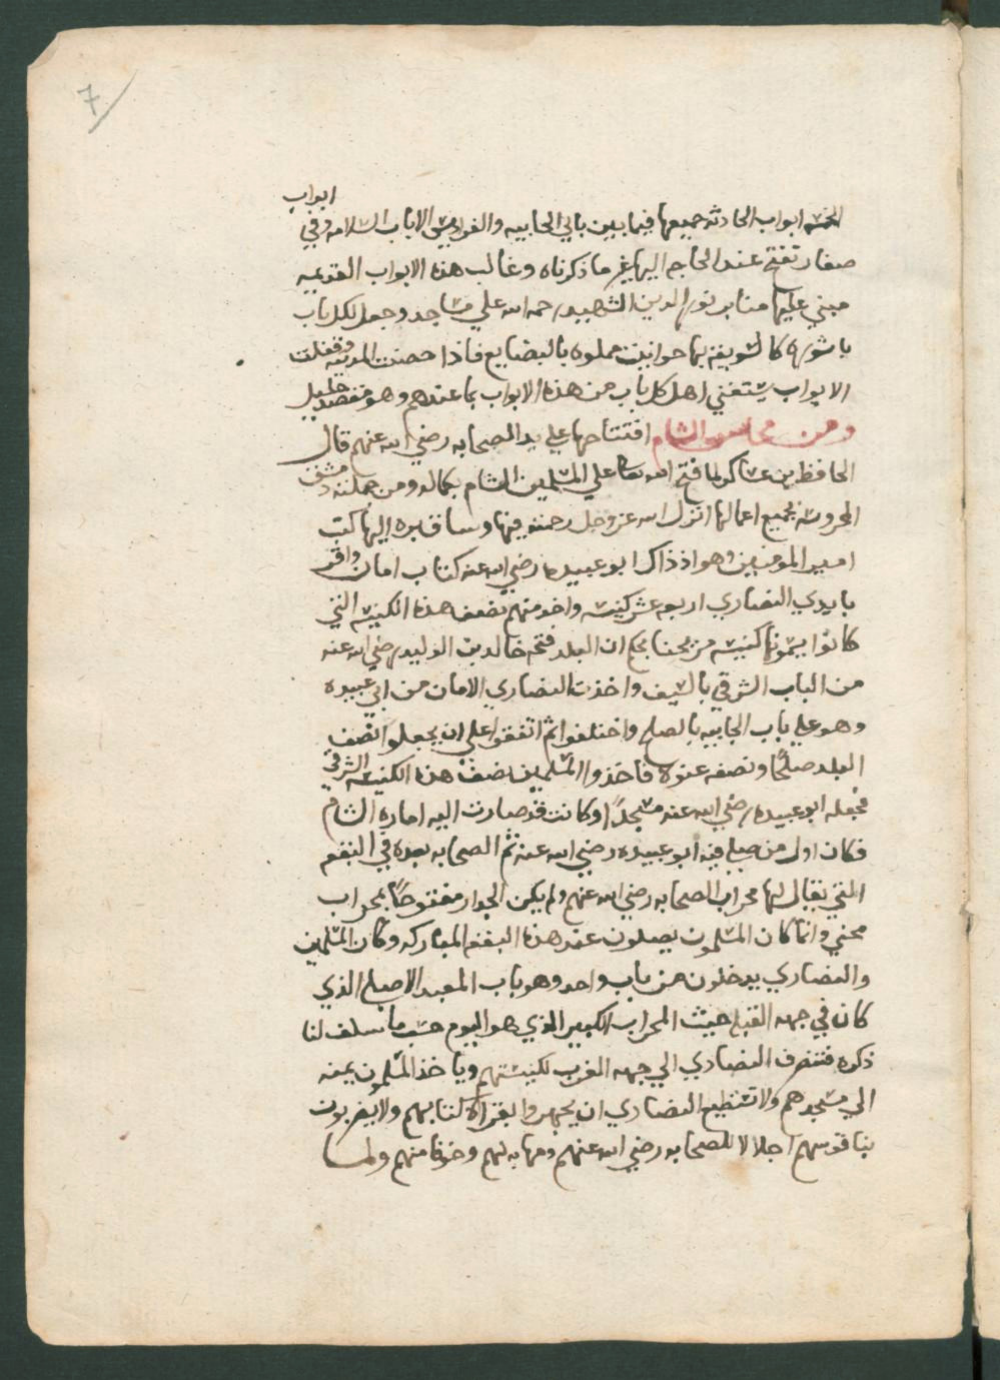 7
ابواب
الخمسه ابواب الحادثه جميعها فيما بين بابي الجابيه والفراديس الا باب السلامه وفي
صغار تفتح عند الحاجه اليها غير ما ذكرناه وغالب هذه الابواب القديمه
مبني عليها منابر نور الدين الشهيد رحمه الله علي مساجد وجعل لكل باب
باشوره كالسويقه بها حوانيت مملوه بالبضايع فاذا حصنت المدينه وقفلت
الابواب يستغني اهل كل باب من هذه الابواب بما عندهم وهو مقصد جليل
ومن محاسن الشام افتتاحها علي يد الصحابه رضي الله عنهم قال
الحافظ بن عساكر لما فتح الله تعالى علي المسلمين الشام بكماله ومن جملته دمشق
المحروسه بجميع اعمالها انزل الله عز وجل رحمته فيها وساق بره اليها كتب
امير المومنين وهو اذ ذاك ابو عبيده رضي الله عنه كتاب امان واقر
بايدي النصاري اربعه عشر كنيسه واخذ منهم نصف هذه الكنيسه التي
كانوا يسمونها كنيسه مر يحنا بحكم ان البلد فتحه خالد بن الوليد رضي الله عنه
من الباب الشرقي بالسيف واخذت النصاري الامان من ابي عبيده
وهو علي باب الجابيه بالصلح واختلفوا ثم اتفقوا علي ان يجعلوا نصف
البلد صلحًا ونصفه عنوة فاخذوا المسلمين نصف هذه الكنيسه الشرقي
فجعله ابو عبيده رضي الله عنه مسجدًا وكانت قد صارت اليه امارة الشام
فكان اول من صلي فيه ابو عبيده رضي الله عنه ثم الصحابه بعده في البقعه
التي يقال لها محراب الصحابه رضي الله عنهم ولم يكن الجدار مفتوحًا بمحراب
محني وانما كان المسلمون يصلون عند هذه البقعه المباركه وكان المسلمين
والنصاري يدخلون من باب واحد وهو باب المعبد الاصلي الذي
كان في جهه القبله حيث المحراب الكبير الذي هو اليوم حسب ما سلف لنا
ذكره فتنصرف النصاري الي جهه الغرب لكنيستهم وياخذ المسلمون يمنه
الي مسجدهم ولا تستطيع النصاري ان يجهروا بقراة كتابهم ولا يضربون
بناقوسهم اجلالا للصحابه رضي الله عنهم ومهابه لهم وخوفا منهم ولما